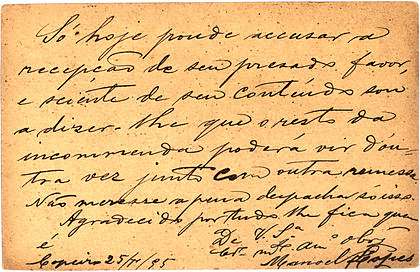 Só hoje poude accusar a
recepção de seu presado favor,
e sciente de seu contiudo sou
a dizer-lhe que o resto da
incommenda poderá vir d'ou-
tra vez junto com outra remessa
Não meresse a pena despachar so isso.
Agradecido por tudo lhe fica que
é
De V. Sª
Cr.º mt.º Amº obrº
25/ /95
Manoel